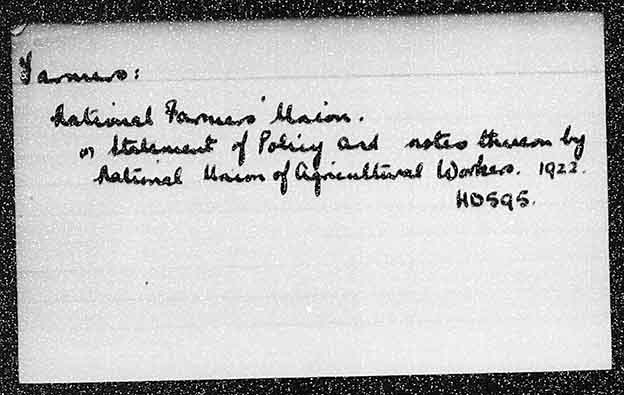 Farmers:
National Farmers' Union.
Statement of Policy and notes thereon by
National Union of Agricultural Workers. 1922.
HD595.